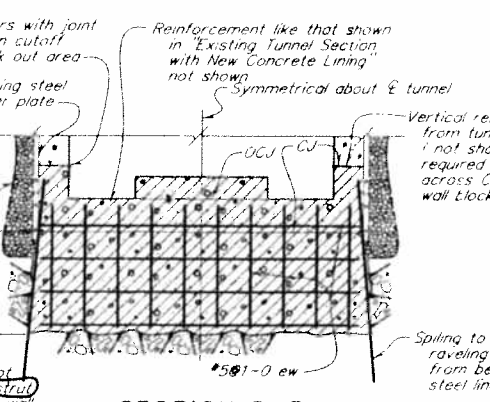 rs with joint
n cutoff
k out area
ng steel
r plate
Reinforcement like that shown
in "Existing Tunnel Section
with New Concrete Lining"
not shown
Symmetrical about ℄ tunnel
Vertical re
from tun
not sho
required
across C
wall block
OCJ
CJ
Spiling to
raveling
from be
steel lin
ew
ot
strut